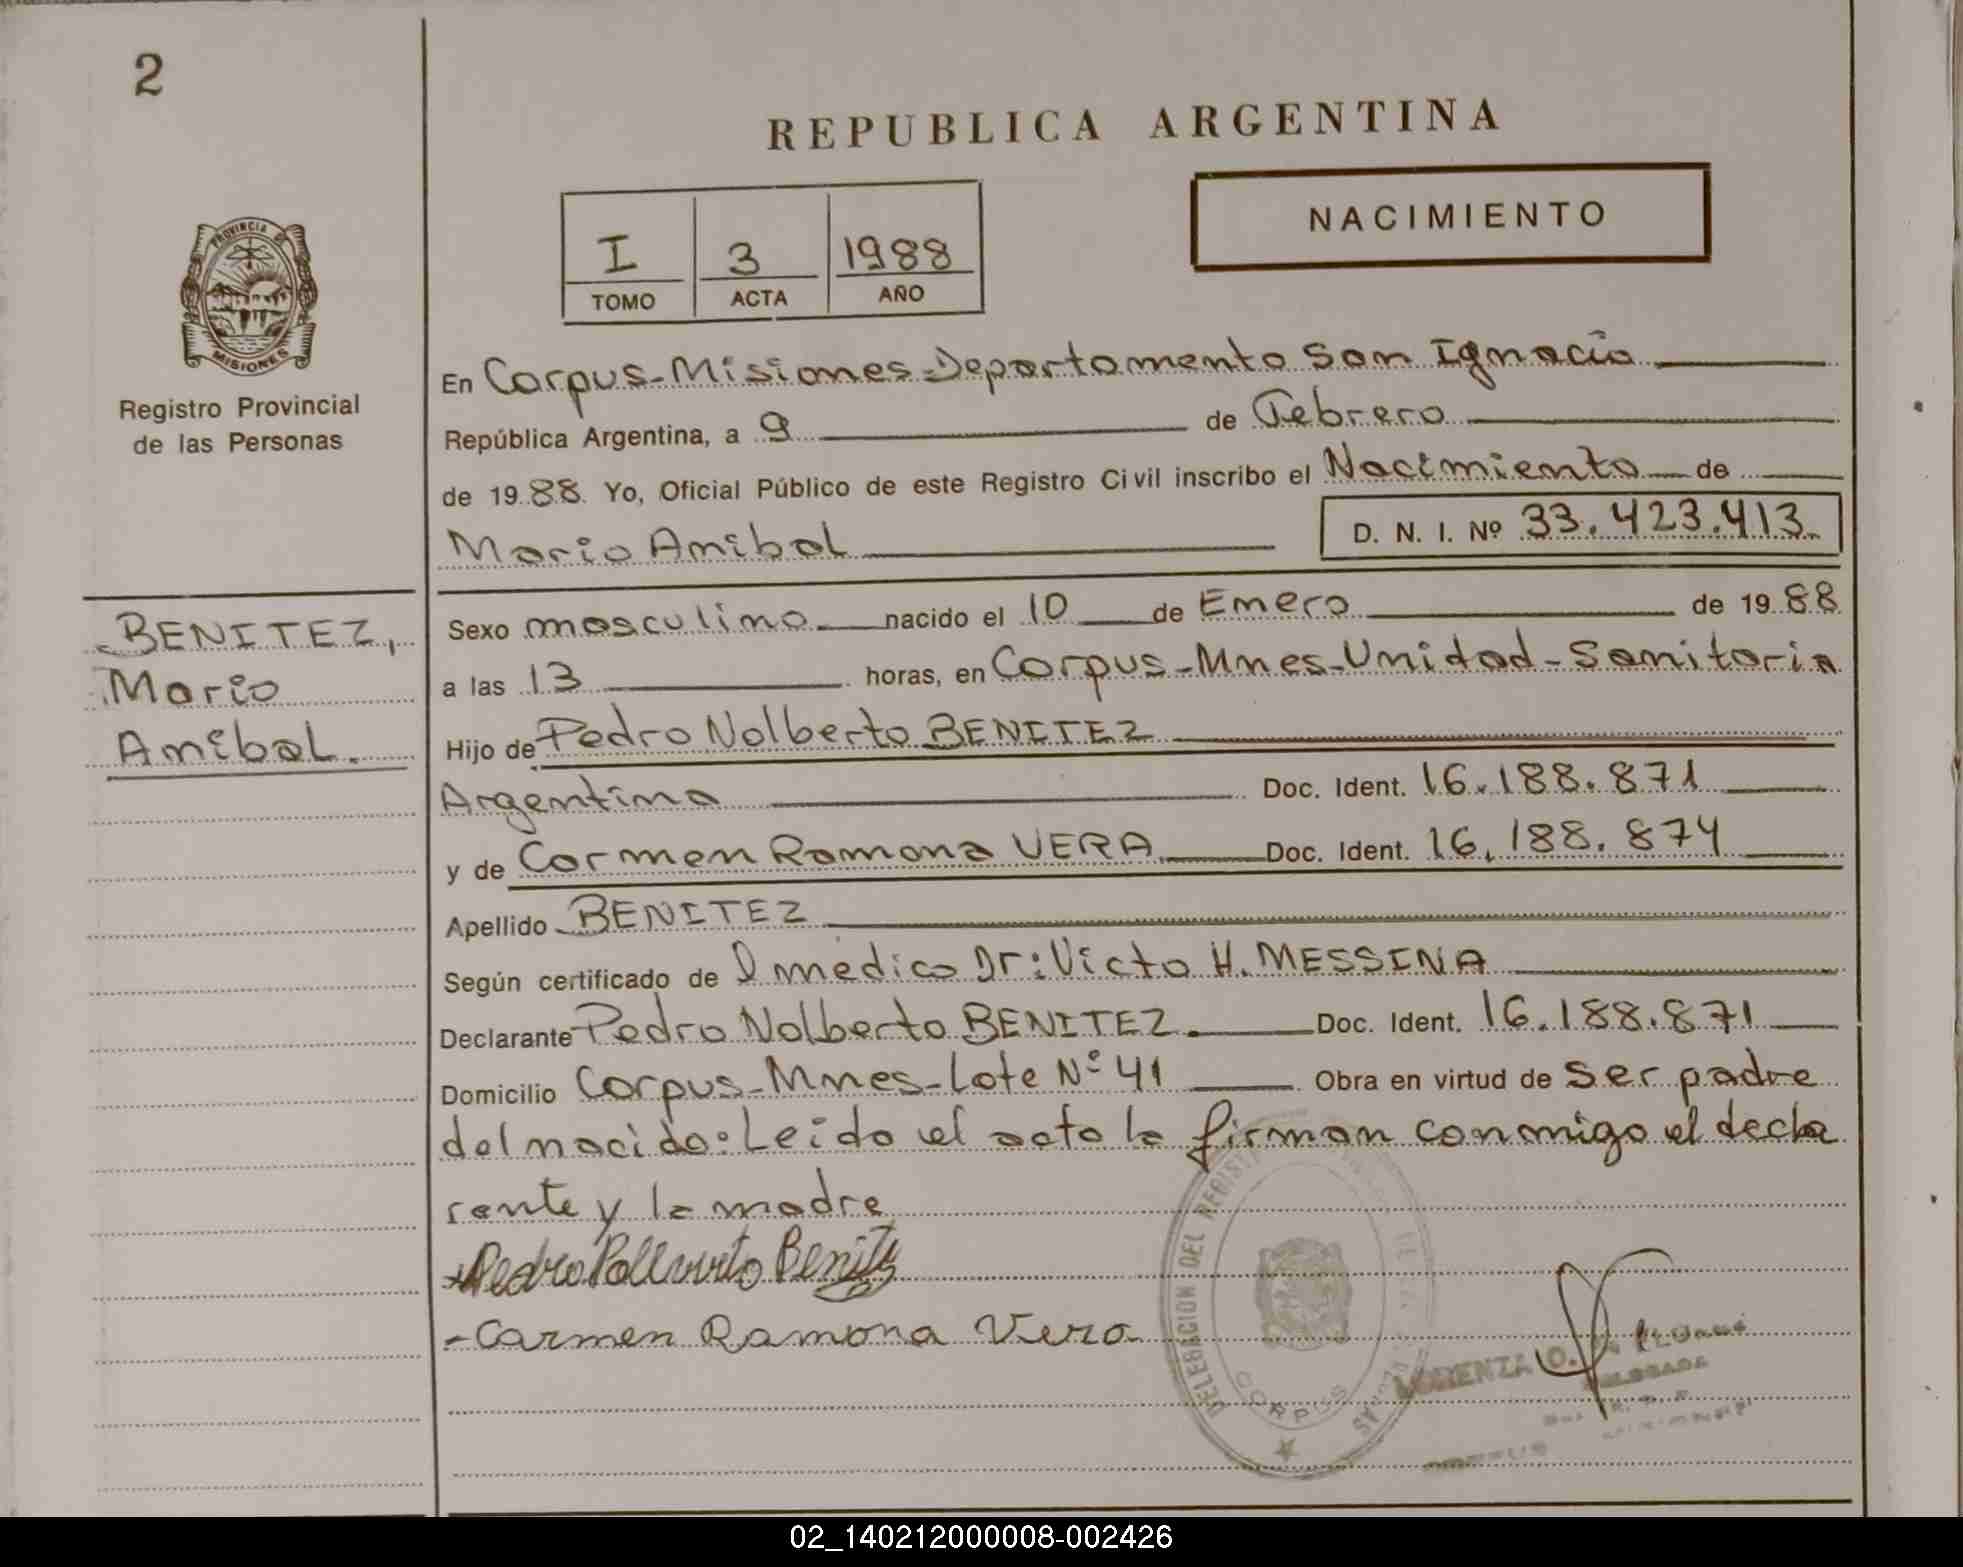 2
REPUBLICA ARGENTINA
NACIMIENTO
I 3 1988
TOMO ACTA AÑO
PROVINCIA DE
MISIONES
Registro Provincial
de las Personas
En Corpus-Misiones-Departamento San Ignacio
República Argentina, a 9 de Febrero
de 1988. Yo, Oficial Público de este Registro Civil inscribo el Nacimiento de
Mario Anibal D. N. I. Nº 33.423.413.
BENITEZ,
Mario
Anibal.
Sexo masculino nacido el 10 de Enero de 1988
a las 13 horas, en Corpus-Mnes-Unidad-Sanitaria
Hijo de Pedro Nolberto BENITEZ
Argentina Doc. Ident. 16.188.871
y de Carmen Ramona VERA Doc. Ident. 16.188.874
Apellido BENITEZ
Según certificado de l medico Dr: Victo H. MESSINA
Declarante Pedro Nolberto BENITEZ. Doc. Ident. 16.188.871
Domicilio Corpus-Mnes-Lote Nº 41 Obra en virtud de ser padre
del nacido: Leido el acta la firman conmigo el decla
rante y la madre
Pedro Benitez
-Carmen Ramona Vera
DELEGACION DEL REGISTRO
CORPUS
LORENZA O.
DELEGADA
02_140212000008-002426